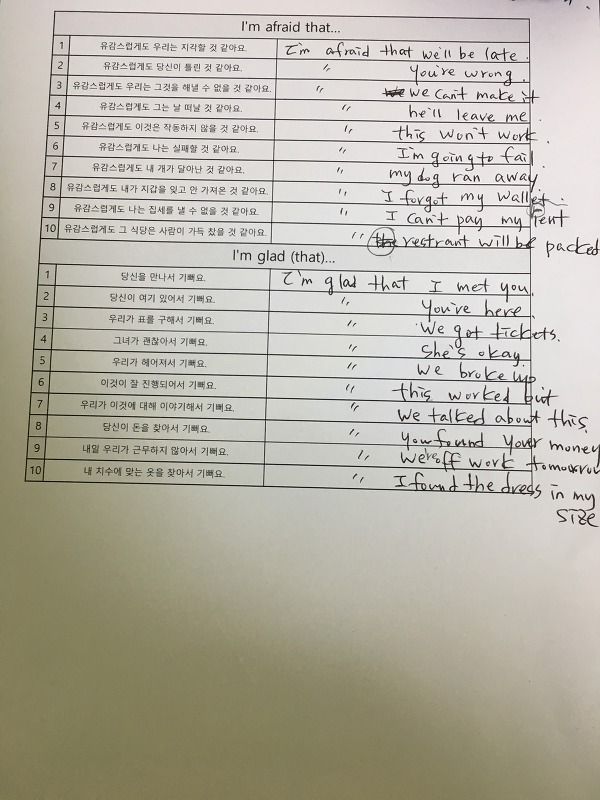 I'm afraid that...
1 유감스럽게도 우리는 지각할 것 같아요. I'm afraid that we'll be late.
2 유감스럽게도 당신이 틀린 것 같아요. 〃 You're wrong.
3 유감스럽게도 우리는 그것을 해낼 수 없을 것 같아요. 〃 we can't make it
4 유감스럽게도 그는 날 떠날 것 같아요. 〃 he'll leave me.
5 유감스럽게도 이것은 작동하지 않을 것 같아요. 〃 this won't work.
6 유감스럽게도 나는 실패할 것 같아요. 〃 I'm going to fail.
7 유감스럽게도 내 개가 달아난 것 같아요. 〃 my dog ran away.
8 유감스럽게도 내가 지갑을 잊고 안 가져온 것 같아요. 〃 I forgot my wallet.
9 유감스럽게도 나는 집세를 낼 수 없을 것 같아요. 〃 I can't pay my rent
10 유감스럽게도 그 식당은 사람이 가득 찼을 것 같아요. 〃 the restrant will be packed
I'm glad (that)...
1 당신을 만나서 기뻐요. I'm glad that I met you.
2 당신이 여기 있어서 기뻐요. 〃 You're here.
3 우리가 표를 구해서 기뻐요. 〃 We got tickets.
4 그녀가 괜찮아서 기뻐요. 〃 She's okay.
5 우리가 헤어져서 기뻐요. 〃 we broke up
6 이것이 잘 진행되어서 기뻐요. 〃 this worked out
7 우리가 이것에 대해 이야기해서 기뻐요. 〃 We talked about this.
8 당신이 돈을 찾아서 기뻐요. 〃 you found your money
9 내일 우리가 근무하지 않아서 기뻐요. 〃 We're off work tomorrow
10 내 치수에 맞는 옷을 찾아서 기뻐요. 〃 I found the dress in my
size